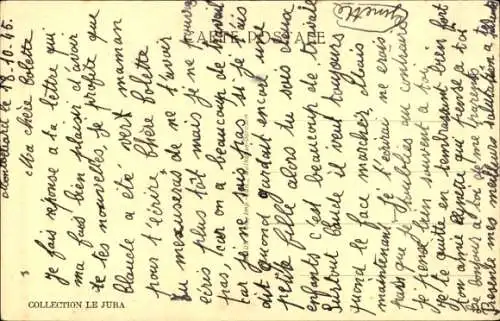 Montbéliard le 18.10.45
Ma chère Colette
Je fais réponse a ta lettre qui
ma fais bien plaisir d'avoir
de tes nouvelles, je profite que
Claude a été vers maman
pour t'écrire chère Colette
Tu mexuseras de ne t'avoir
écris plus tôt mais je ne pouvai
pas, car on a beaucoup de travail
car je ne sais pas si je t'avais
dit quond gardait encore une
petite fille alors tu sais deux
enfants c'est beaucoup de travaille
surtout Claude il veut toujours
quond le face marcher, Mais
maintenant je t'écrirai ne crois
pas que je t'oublies au contraire
je pense bien souvent a toi
je te quitte en tembrassant bien fort
ton amie Ginette qui pense a toi
Le bonjour a toi de mes parents
Boube mes meilleurs salutation a
Ginette
CARTE POSTALE
COLLECTION LE JURA